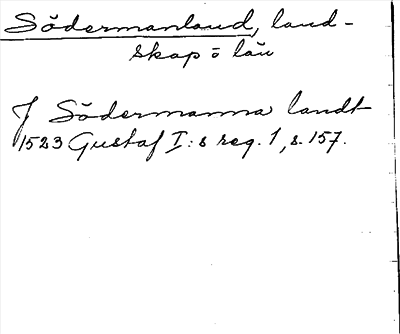 Södermanland, land-
skap o län
J Södermanna landt
1523 Gustaf I:s reg. 1, s. 157.